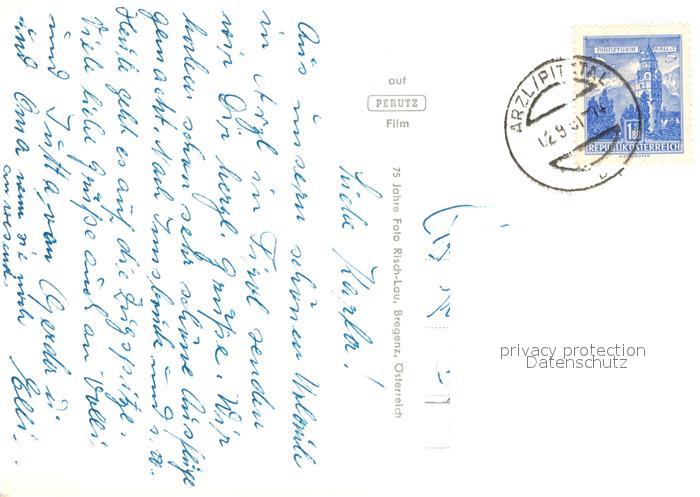 Liebe Karla!
Aus unserm schönen Urlaub
in Arzl in Tirol senden
wir Dir herzl. Grüße. Wir
haben schon sehr schöne Ausflüge
gemacht. Nach Innsbruck und s.w.
Heute geht es auf die Zugspitze.
Viele liebe Grüße auch an
und Jutta, von Gerda u.
und Oma wenn sie noch
anwesend
auf
PERUTZ
Film
75 Jahre Foto Risch-Lau, Bregenz, Österreich
ARZL/PITZTAL
12.9.61-14
MÜNZTURM HALL I/T
1.80
REPUBLIK ÖSTERREICH
privacy protection
Datenschutz